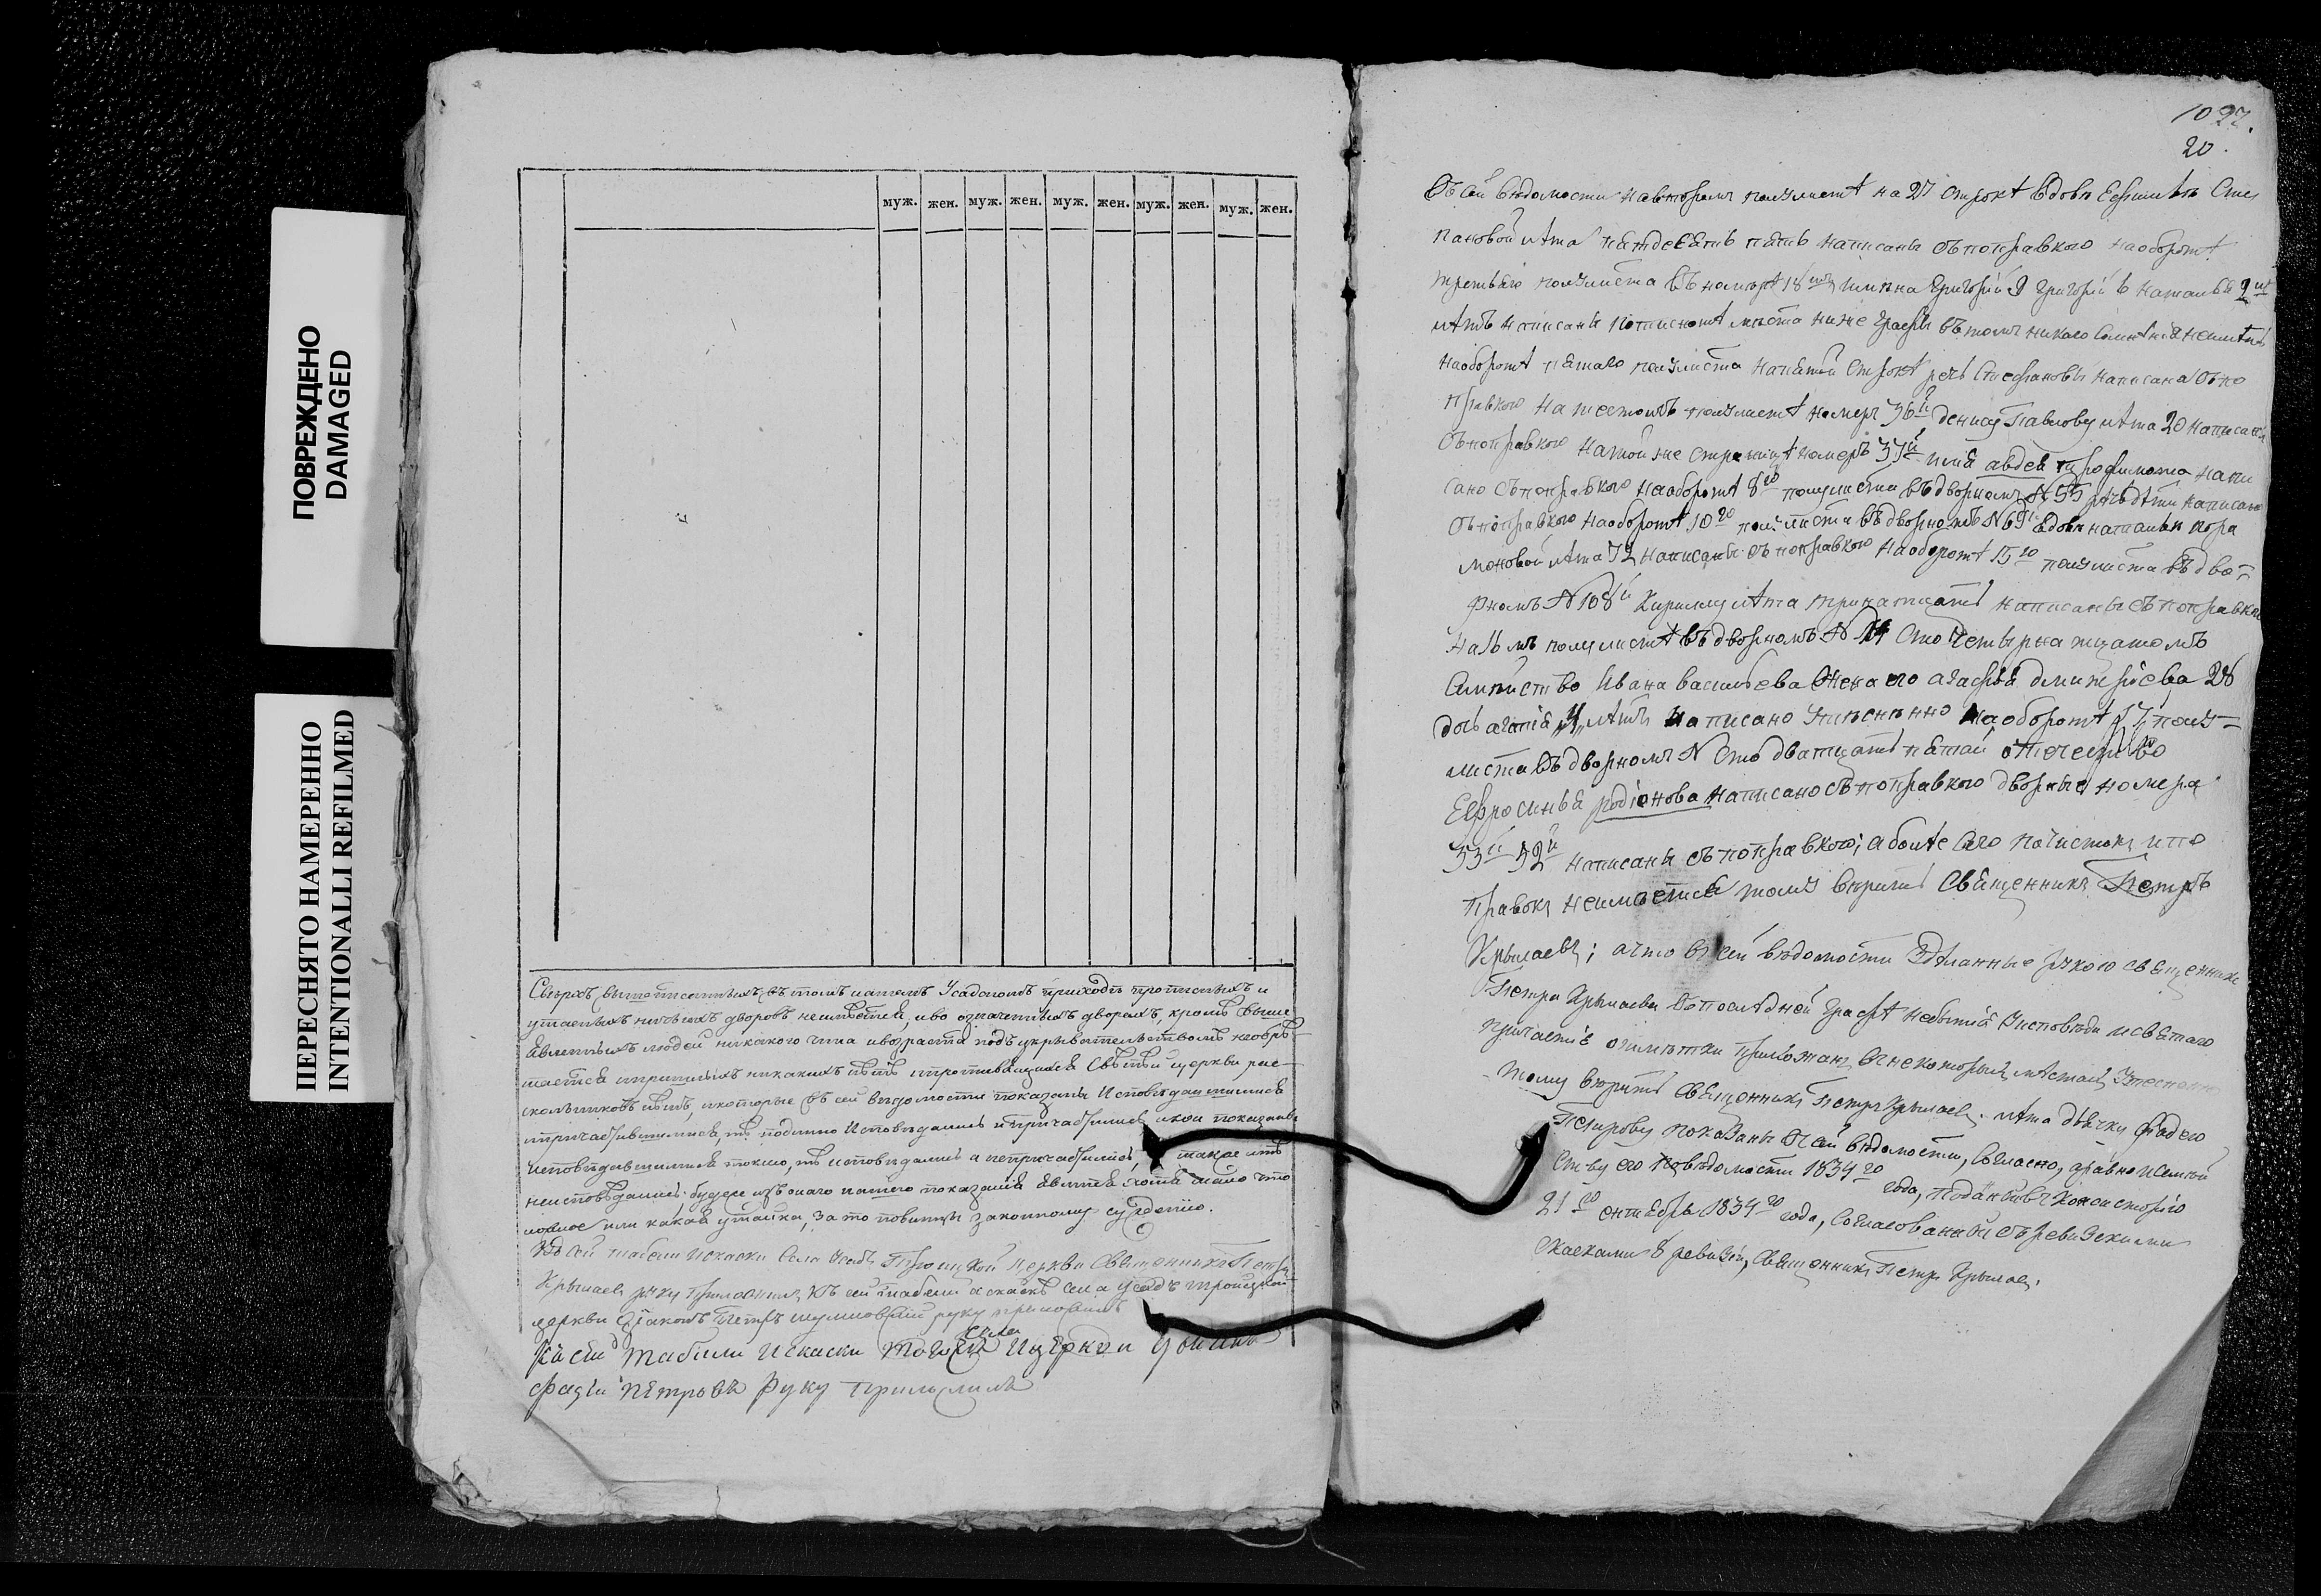 ПОВРЕЖДЕНО
DAMAGED
ПЕРЕСНЯТО НАМЕРЕННО
INTENTIONALLI REFILMED
муж. жен. муж. жен. муж. жен. муж. жен. муж. жен.
Сверхъ вышеписанныхъ въ томъ нашемъ Усадскомъ приходѣ прописныхъ и
утаенныхъ ничьихъ дворовъ неимѣется, и во означенныхъ дворахъ, кромѣ выше
явленныхъ людей никакого чина и возраста подъ укрывательствомъ необрѣ-
тается и пришлыхъ никакихъ нѣтъ и противящихся Святѣй церкви рас-
кольниковъ нѣтъ, и которые въ сей вѣдомости показаны Исповѣдавшимися
и причастившимися, тѣ подлинно Исповѣдались и причастились, а кои показаны
исповѣдавшимися токмо, тѣ исповѣдались а непричастились, также
неисповѣдались. будеже изъ онаго нашего показанія явится хотя мало что
ложное или какая утайка, за то повинны законному суждению.
Къ сей табели и скаски Села Усадъ Троицкой церкви Священникъ Петръ
Крылаевъ руку приложилъ Къ сей табели и скаскѣ села Усадъ троицкой
церкви діаконъ Петръ руку приложилъ
Къ сей табели и скаски той села и церкви
Фадеи петровъ руку приложилъ
1027.
20.
Въ сей вѣдомости на второмъ полулистѣ на 27 строкѣ вдовы Ефимьи Сте
пановой лѣта пятдесятъ пять написаны съ поправкою на оборотѣ
третьяго полулиста въ номерѣ 18мъ Григорий 9 Григорий 6 Наталья 2
лѣтъ написаны места ниже графы въ томъ никого неимѣть
на оборотѣ пятаго полулиста на пятой строкѣ речь Стефановы написана съ по
правкою на шестомъ полулистѣ номеръ 36й денису Павлову лѣта 20 написаны
съ поправкою на той же страницѣ номеръ 37й имя авдея Трофимова напи
сано съ поправкою на оборотѣ 8го полулиста въ дворномъ № 55 рѣчь дѣти написано
съ поправкою на оборотѣ 10го полулиста въ дворномъ № 69 вдовы натальи
моновой лѣта 72 написаны съ поправкою на оборотѣ 15го полулиста въ дво-
рномъ № 108й Кириллу лѣта тринатцать написаны съ поправкою
на 16мъ полулистѣ въ дворномъ № Сто четырнатцатомъ
Семѣйство Ивана васильева Жена его агафья дмитріева 28
дочь агапія 4 лѣтъ написано на оборотѣ 17 полу-
листа въ дворномъ № Сто дватцать пятой отечество
Ефросинья родіонова написано съ поправкою дворные номера
53й 52й написаны съ поправкою; а болѣе сего почистокъ и по
правокъ неимѣется тому вѣритъ Священникъ Петръ
Крылаевъ; а что въ сей вѣдомости здѣланные рукою священника
Петра Крылаева въ послѣдней графѣ небытия Уисповѣди и святаго
причастіе отмѣтки прихожанъ въ некоторыхъ мѣстахъ
тому вѣритъ Священникъ Петръ Крылаевъ. лѣта дьячку Фадею
Петрову показаны въ сей вѣдомости, согласно, а равно и семей
ству его по вѣдомости 1834го года, поданной въ Консисторію
21го сентября 1834го года, согласованной съ ревизскими
скасками 8 ревизіи, Священникъ Петръ Крылаевъ.